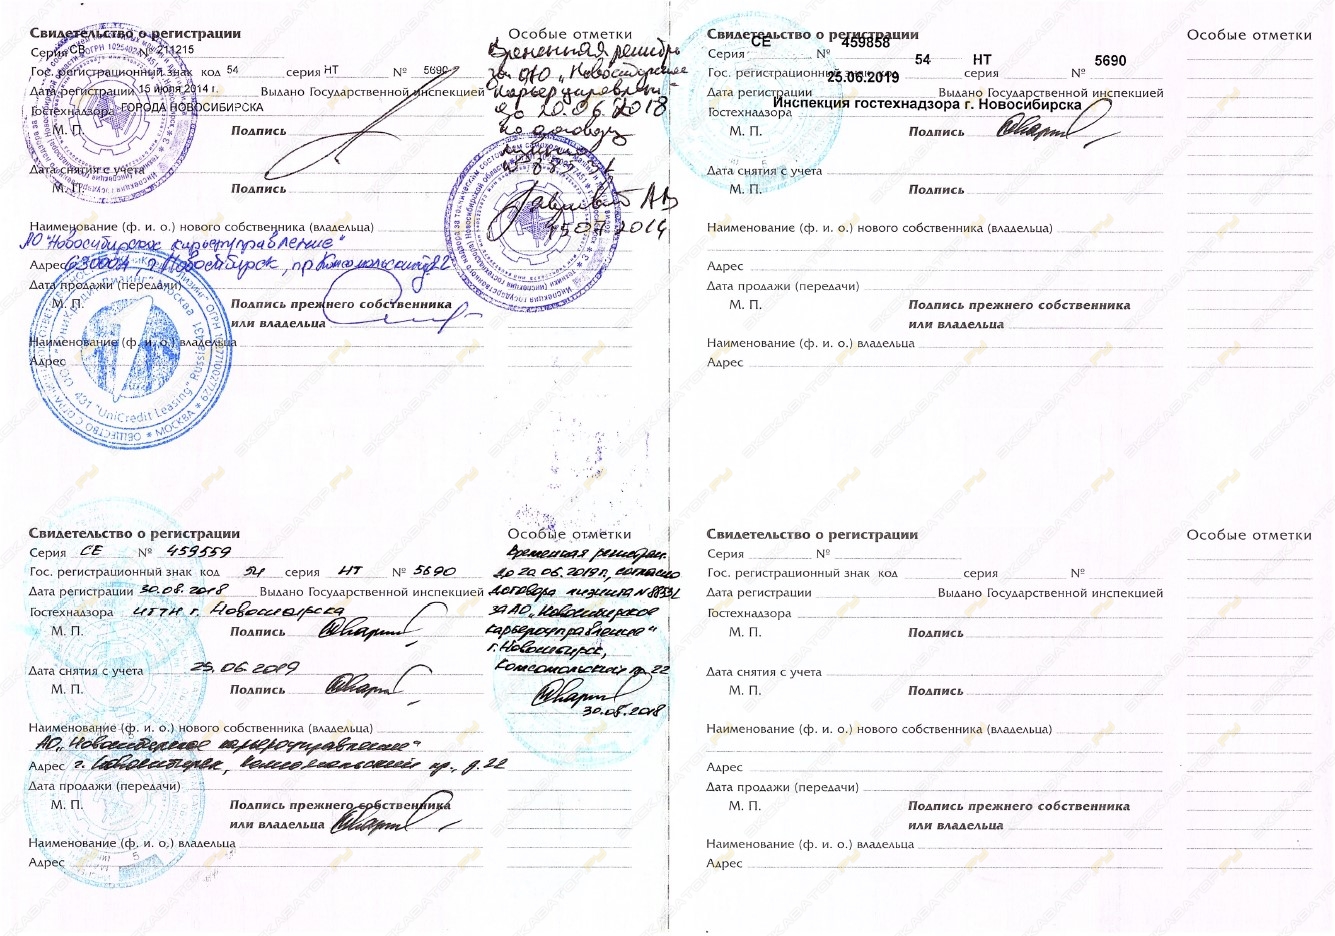 Свидетельство о регистрации
Серия СВ № 211215
Гос. регистрационный знак код 54 серия НТ № 5690
Дата регистрации 15 июля 2014 г. Выдано Государственной инспекцией
Гостехнадзора ГОРОДА НОВОСИБИРСКА
М. П. Подпись
Дата снятия с учета
М. П. Подпись
Наименование (ф. и. о.) нового собственника (владельца)
АО "Новосибирское карьероуправление"
Адрес 630004, г. Новосибирск, пр Комсомольский, 22
Дата продажи (передачи)
М. П. Подпись прежнего собственника
или владельца
Наименование (ф. и. о.) владельца
Адрес
Особые отметки
Временная регистр.
за ОАО „Новосибирское
карьероуправление"
до 20.06.2018
по договору
15.07.2014
"UniCredit Leasing" Russia
МОСКВА
Свидетельство о регистрации
Серия СЕ № 459858
Гос. регистрационный знак код 54 серия НТ № 5690
Дата регистрации 25.06.2019 Выдано Государственной инспекцией
Гостехнадзора Инспекция гостехнадзора г. Новосибирска
М. П. Подпись
Дата снятия с учета
М. П. Подпись
Наименование (ф. и. о.) нового собственника (владельца)
Адрес
Дата продажи (передачи)
М. П. Подпись прежнего собственника
или владельца
Наименование (ф. и. о.) владельца
Адрес
Особые отметки
Свидетельство о регистрации
Серия СЕ № 459559
Гос. регистрационный знак код 54 серия НТ № 5690
Дата регистрации 30.08.2018 Выдано Государственной инспекцией
Гостехнадзора ИГТН г. Новосибирска
М. П. Подпись
Дата снятия с учета 25.06.2019
М. П. Подпись
Наименование (ф. и. о.) нового собственника (владельца)
АО „Новосибирское карьероуправление"
Адрес г. Новосибирск, Комсомольский пр., д. 22
Дата продажи (передачи)
М. П. Подпись прежнего собственника
или владельца
Наименование (ф. и. о.) владельца
Адрес
Особые отметки
Временная регистрац.
до 20.06.2019г., согласно
договора лизинга
за АО „Новосибирское
карьероуправление"
г. Новосибирск,
Комсомольский пр. 22
30.08.2018
Свидетельство о регистрации
Серия №
Гос. регистрационный знак код серия №
Дата регистрации Выдано Государственной инспекцией
Гостехнадзора
М. П. Подпись
Дата снятия с учета
М. П. Подпись
Наименование (ф. и. о.) нового собственника (владельца)
Адрес
Дата продажи (передачи)
М. П. Подпись прежнего собственника
или владельца
Наименование (ф. и. о.) владельца
Адрес
Особые отметки